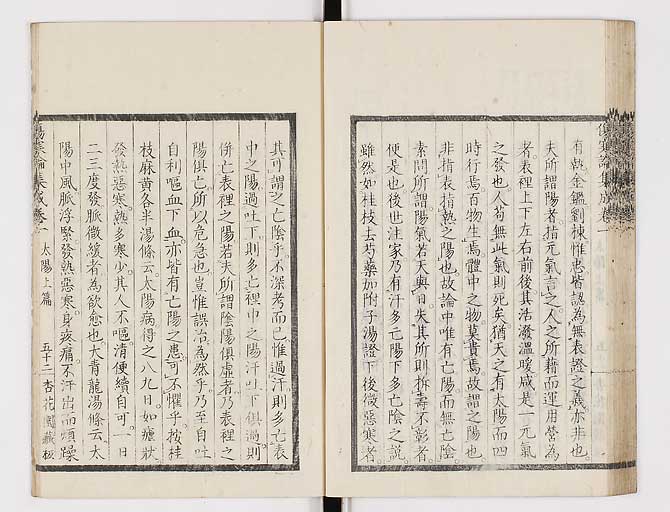 有熱金鑑劉棟惟忠皆認為無表證之義亦非也。
夫所謂陽者指元氣言之人之所藉而運用營為
者。表裡上下左右前後其活潑溫暖咸是一元氣
之發也人若無此氣則死矣猶天之有太陽而四
時行焉。百物生焉。體中之物莫貴焉。故謂之陽也
非指表指熱之陽也。故論中唯有亡陽而無亡陰。
素問所謂陽氣若天與日。失其所則折壽不彰者。
便是也後世注家乃有汗多亡陽下多亡陰之說。
雖然如桂枝去芍藥加附子湯證下後微惡寒者。
其可謂之亡陰乎。不深考而已惟過汗則多亡表
中之陽。過吐下則多亡裡中之陽汗吐下俱過則
併亡表裡之陽若夫所謂陰陽俱虛者乃表裡之
陽俱亡所以危急也豈惟誤治為然乎乃至自吐
自利嘔血下血亦皆有亡陽之患。可不懼乎按桂
枝麻黃各半湯條云。太陽病得之八九日。如瘧狀
發熱惡寒。熱多寒少。其人不嘔清便續自可。一日
二三度發脈微緩者為欲愈也。大青龍湯條云太
陽中風脈浮緊。發熱惡寒。身疼痛不汗出而煩躁
傷寒論集成卷一 太陽上篇 五十二 杏花園藏板